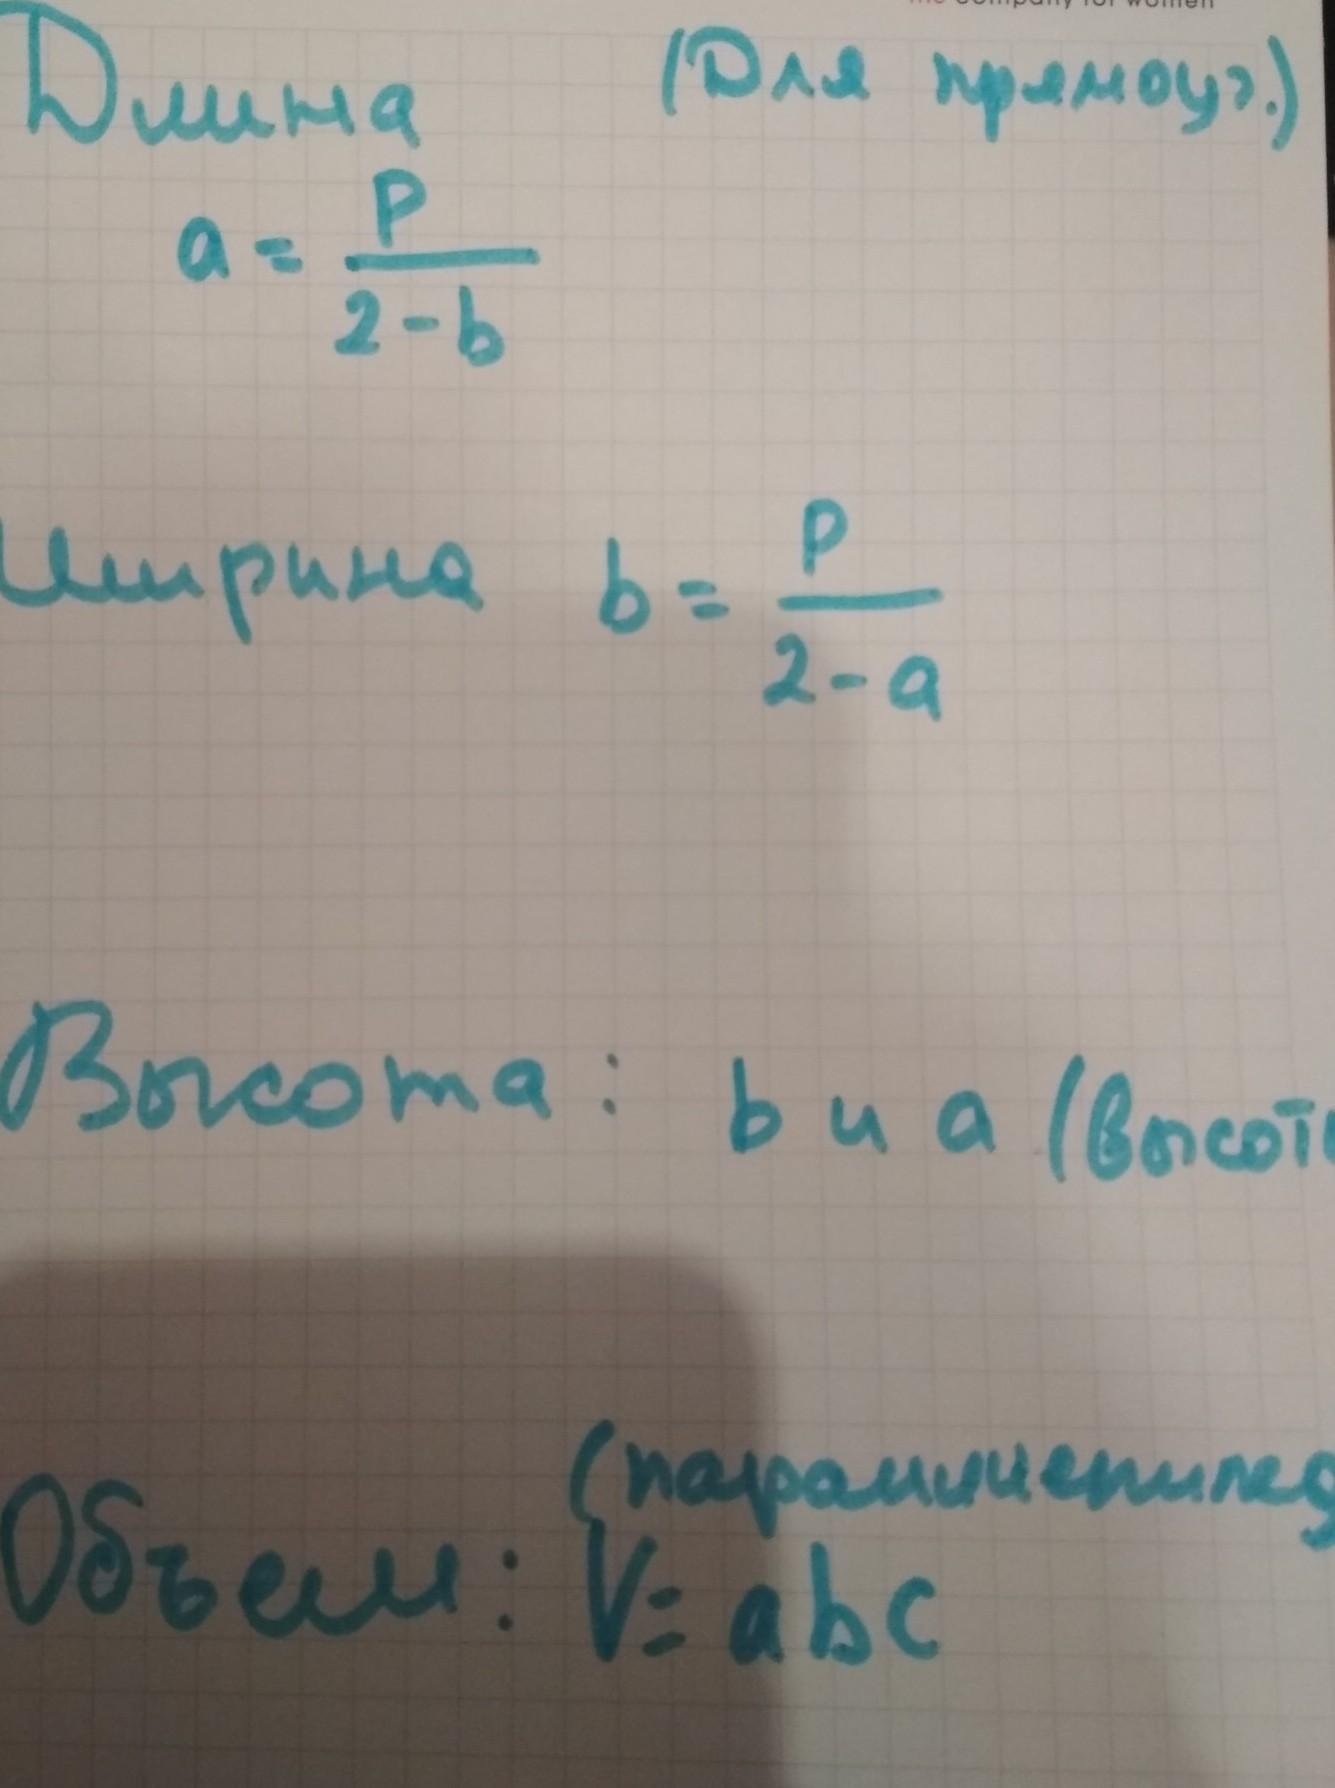 company for women
Длина (Для прямоуг.)
a = P
2 - b
Ширина b = P
2 - a
Высота: b и a (высот
(параллепипед
Объем: V = abc